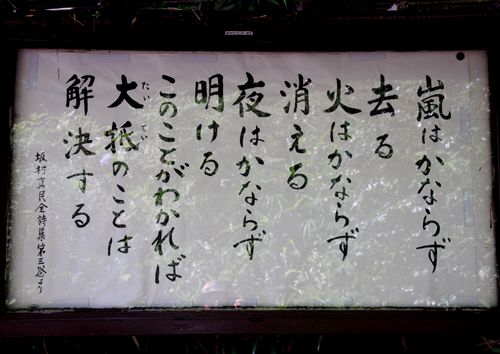 嵐はかならず
去る
火はかならず
消える
夜はかならず
明ける
このことがわかれば
大抵のことは
解決する
坂村真民全詩集第三巻より